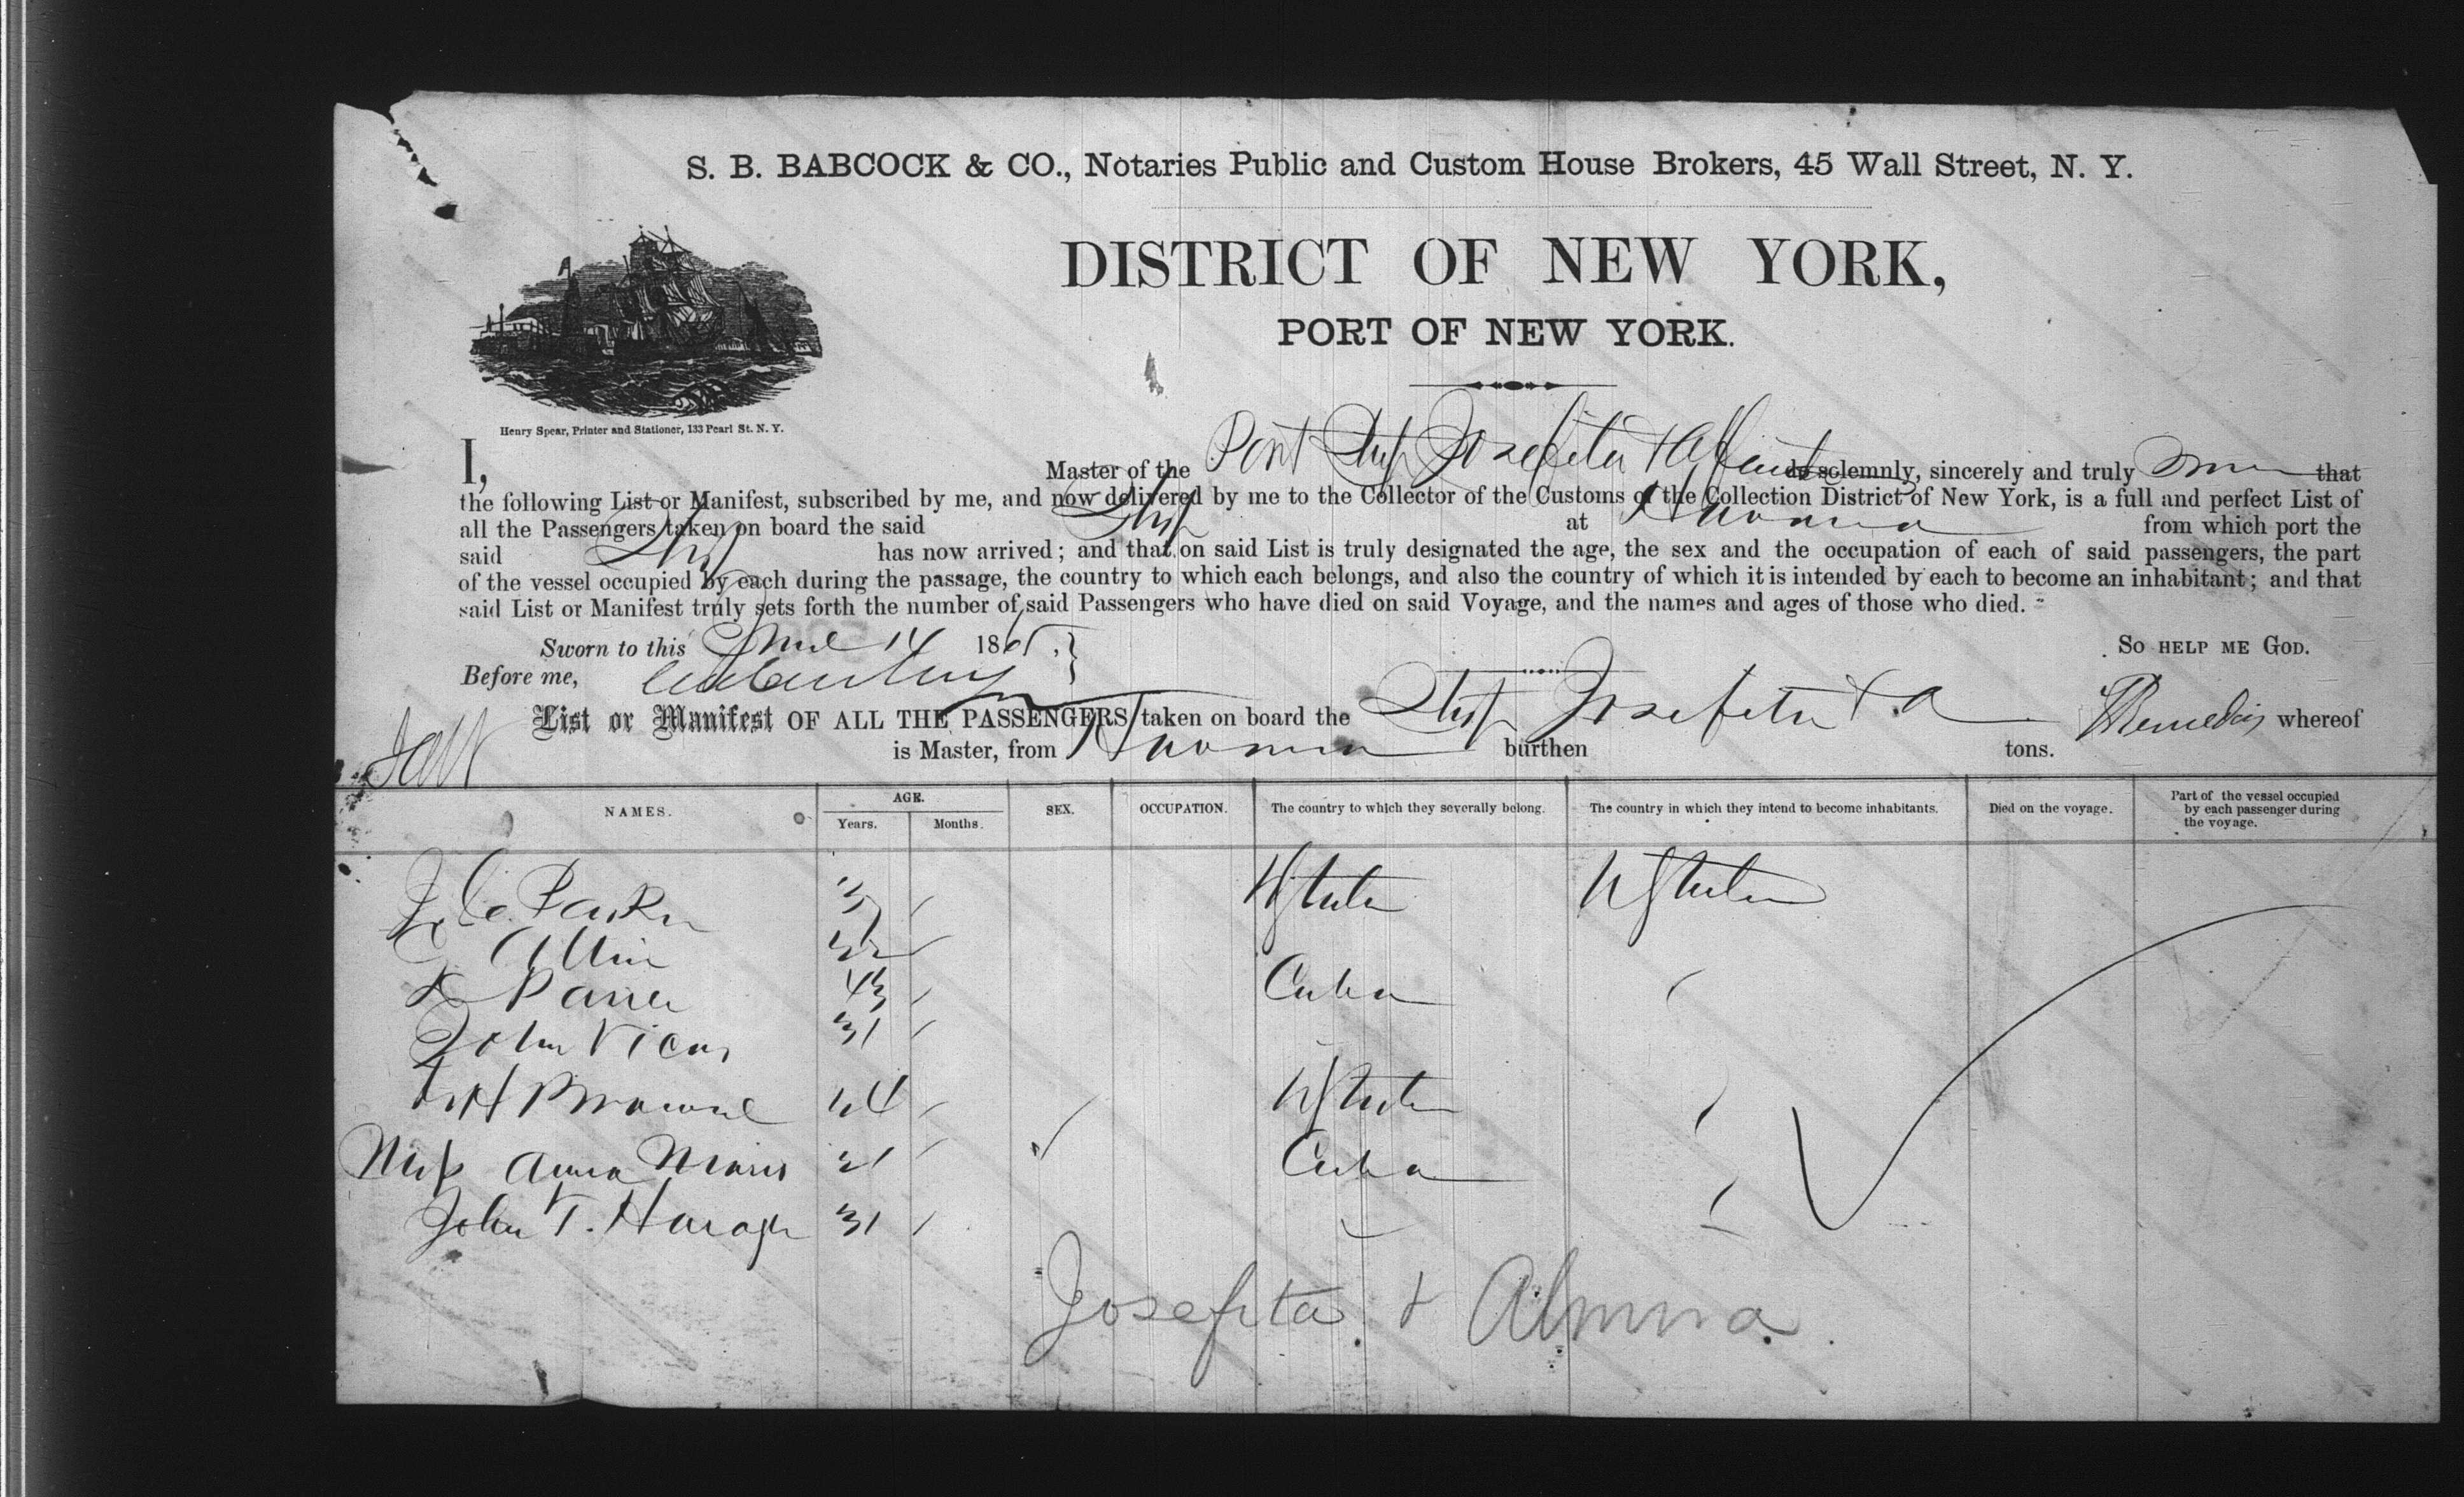 S. B. BABCOCK & CO., Notaries Public and Custom House Brokers, 45 Wall Street, N. Y.
DISTRICT OF NEW YORK,
PORT OF NEW YORK.
Henry Spear, Printer and Stationer, 133 Pearl St. N. Y.
I, Master of the Port Ship Josefita & do solemnly, sincerely and truly that
the following List or Manifest, subscribed by me, and now delivered by me to the Collector of the Customs of the Collection District of New York, is a full and perfect List of
all the Passengers taken on board the said Ship at Havana from which port the
said Ship has now arrived; and that on said List is truly designated the age, the sex and the occupation of each of said passengers, the part
of the vessel occupied by each during the passage, the country to which each belongs, and also the country of which it is intended by each to become an inhabitant; and that
said List or Manifest truly sets forth the number of said Passengers who have died on said Voyage, and the names and ages of those who died.
Sworn to this June 14 1865, SO HELP ME GOD.
Before me,
List or Manifest OF ALL THE PASSENGERS taken on board the Ship Josefita & A whereof
is Master, from Havana burthen tons.
NAMES. AGE. SEX. OCCUPATION. The country to which they severally belong. The country in which they intend to become inhabitants. Died on the voyage. Part of the vessel occupied by each passenger during the voyage.
Years. Months.
Parker UStates UStates
Allin
43 Cuba
John 31
H Browne 24 UStates
Miss Anna 21 Cuba
John T. 31
Josefita & Almina.